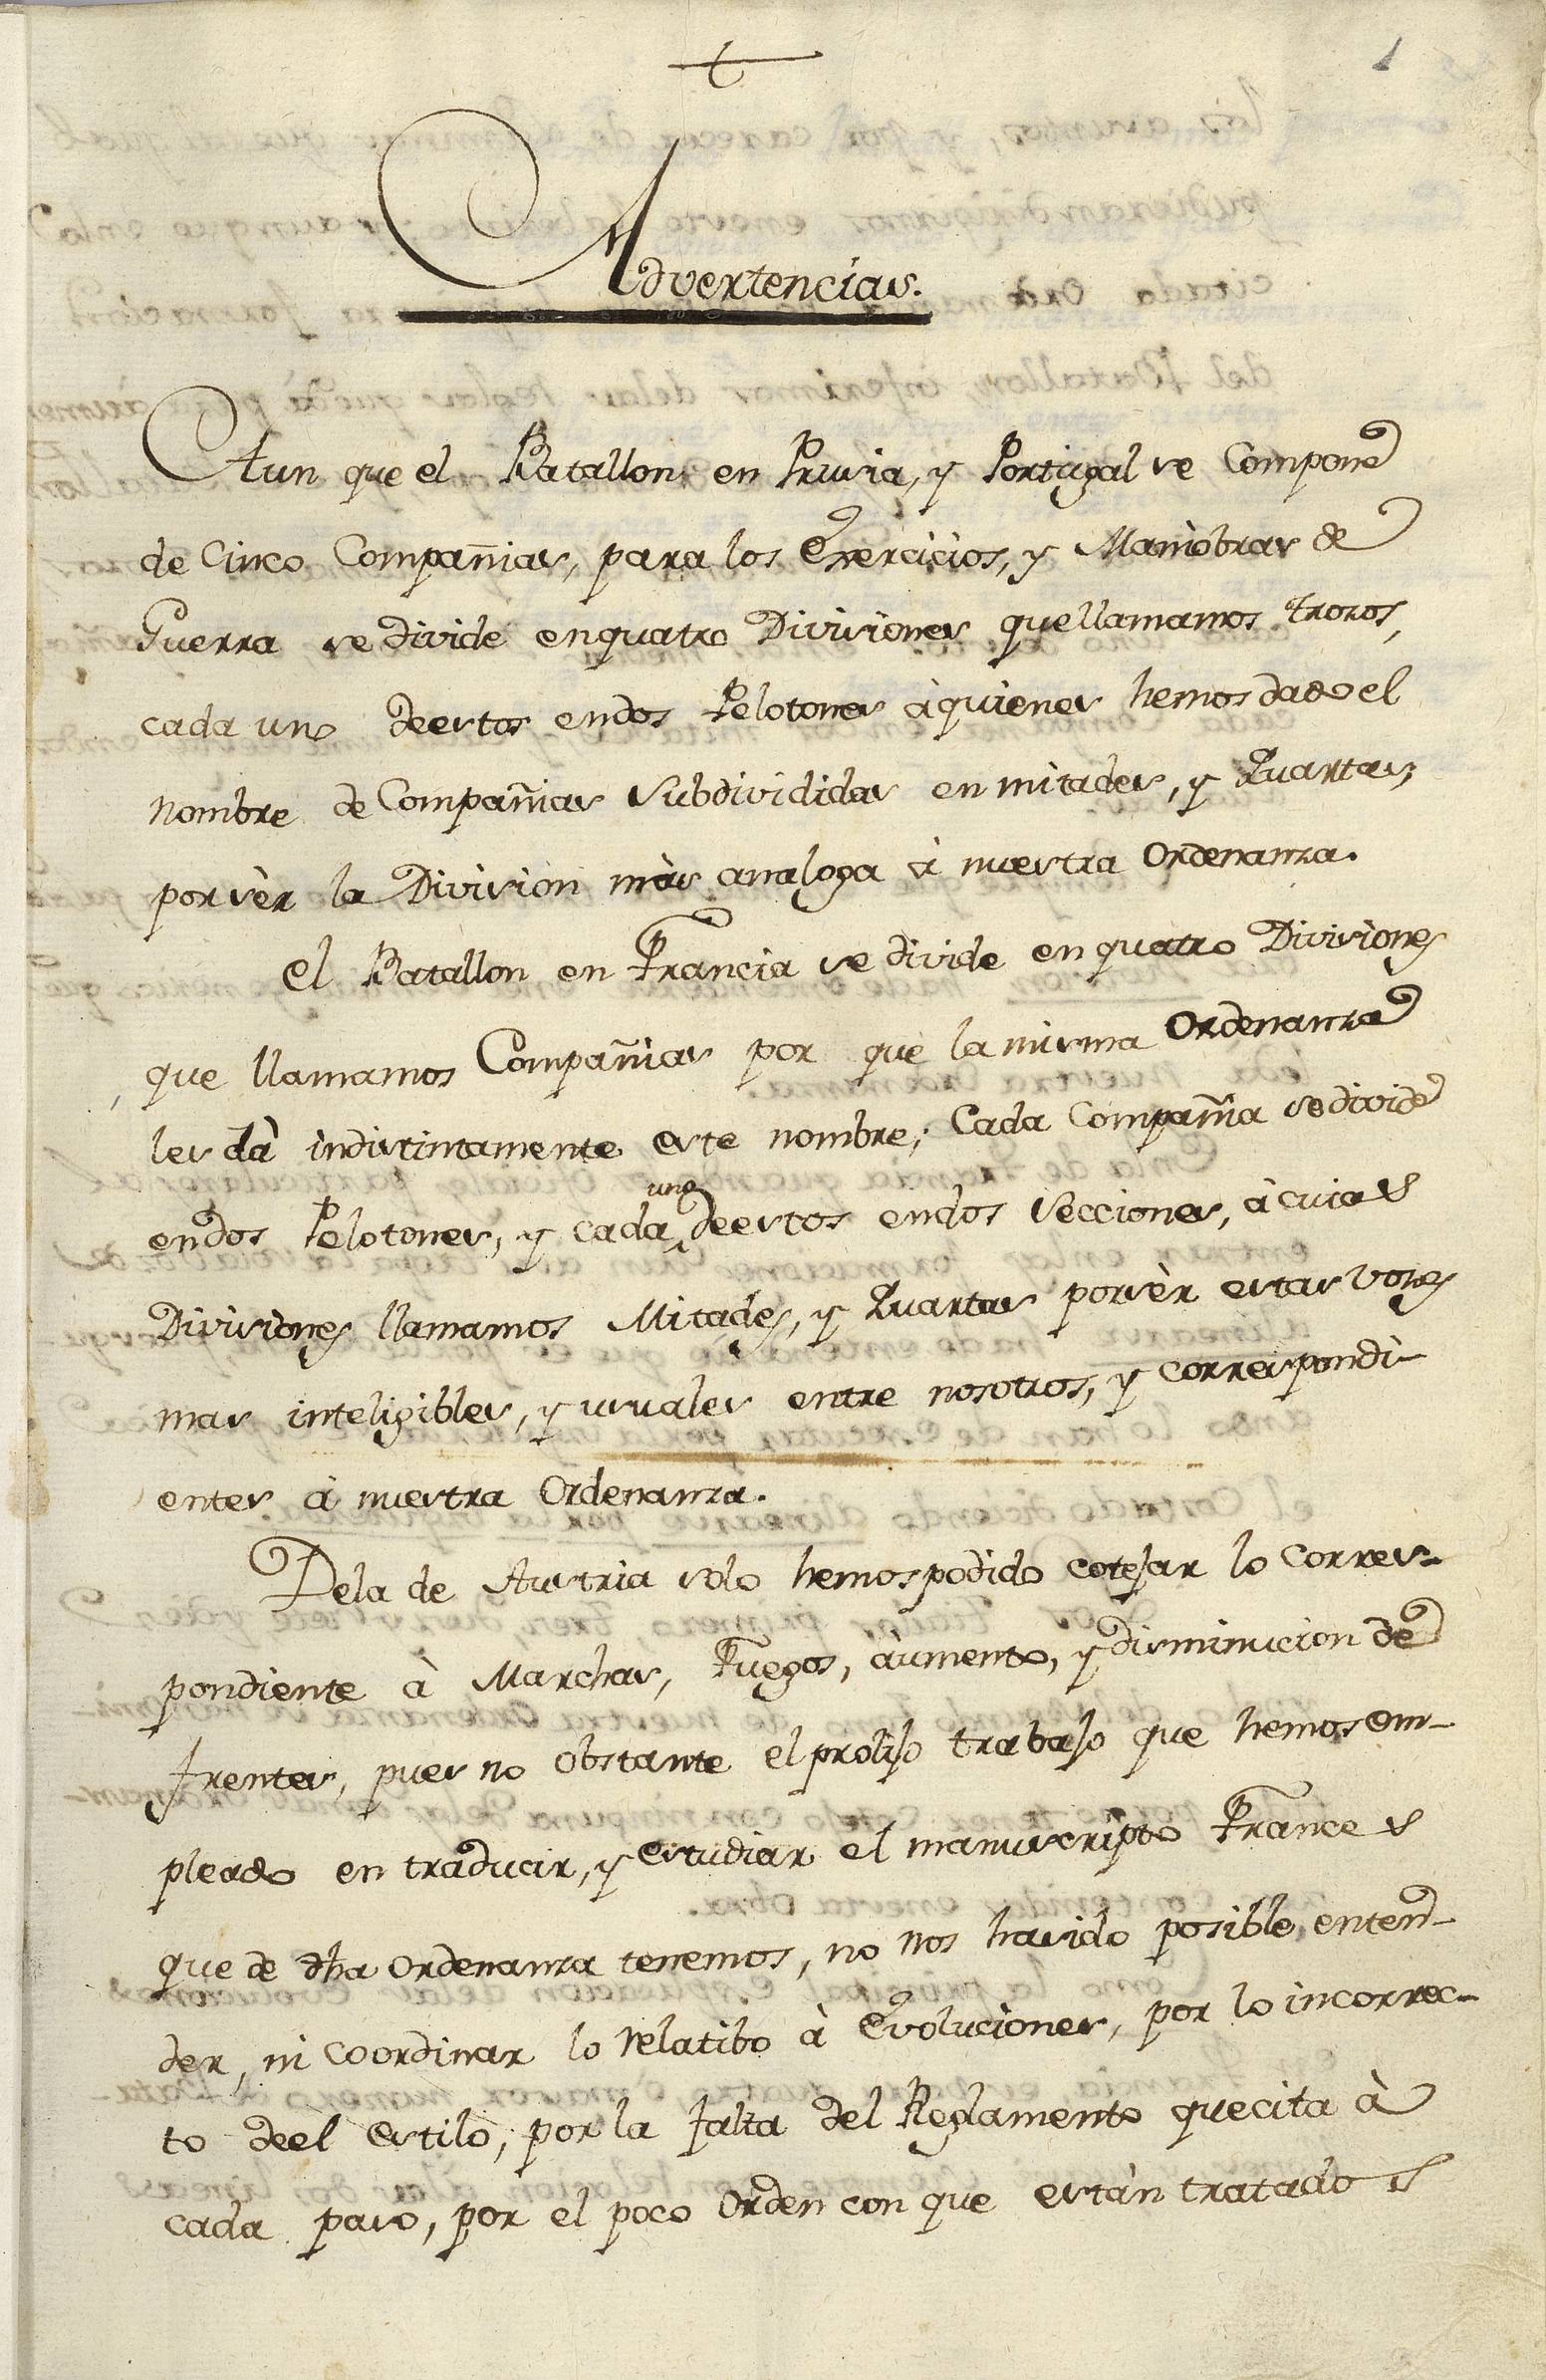 1
Advertencias.
Aun que el Batallon en Prusia, y Portugal se Compone
de Cinco Compañias, para los Exercicios, y Maniobras de
Guerra se divide en quatro Divisiones que llamamos trozos,
cada uno de estos en dos Pelotones à quienes hemos dado el
nombre de Compañias subdivididas en mitades, y Quartas,
por sèr la Division màs analoga à nuestra Ordenanza.
El Batallon en Francia se divide en quatro Divisiones
que llamamos Compañias por que la misma Ordenanza
les dà indistintamente este nombre; Cada Compañia se divide
en dos Pelotones, y cada uno de estos en dos secciones, à cuias
Divisiones llamamos Mitades, y Quartas por sèr estas voces
mas inteligibles, y usuales entre nosotros, y correspondi-
entes à nuestra Ordenanza.
De la de Austria solo hemos podido cotejar lo corres-
pondiente à Marchas, Fuegos, aumento, y disminucion de
frentes, pues no obstante el prolijo trabajo que hemos em-
pleado en traducir, y estudiar el manuscripto Frances
que de dha Ordenanza tenemos, no nos ha sido posible enten-
der, ni coordinar lo relatibo à Evoluciones, por lo incorrec-
to de el estilo, por la falta del Reglamento que cita à
cada paso, por el poco orden con que estàn tratados